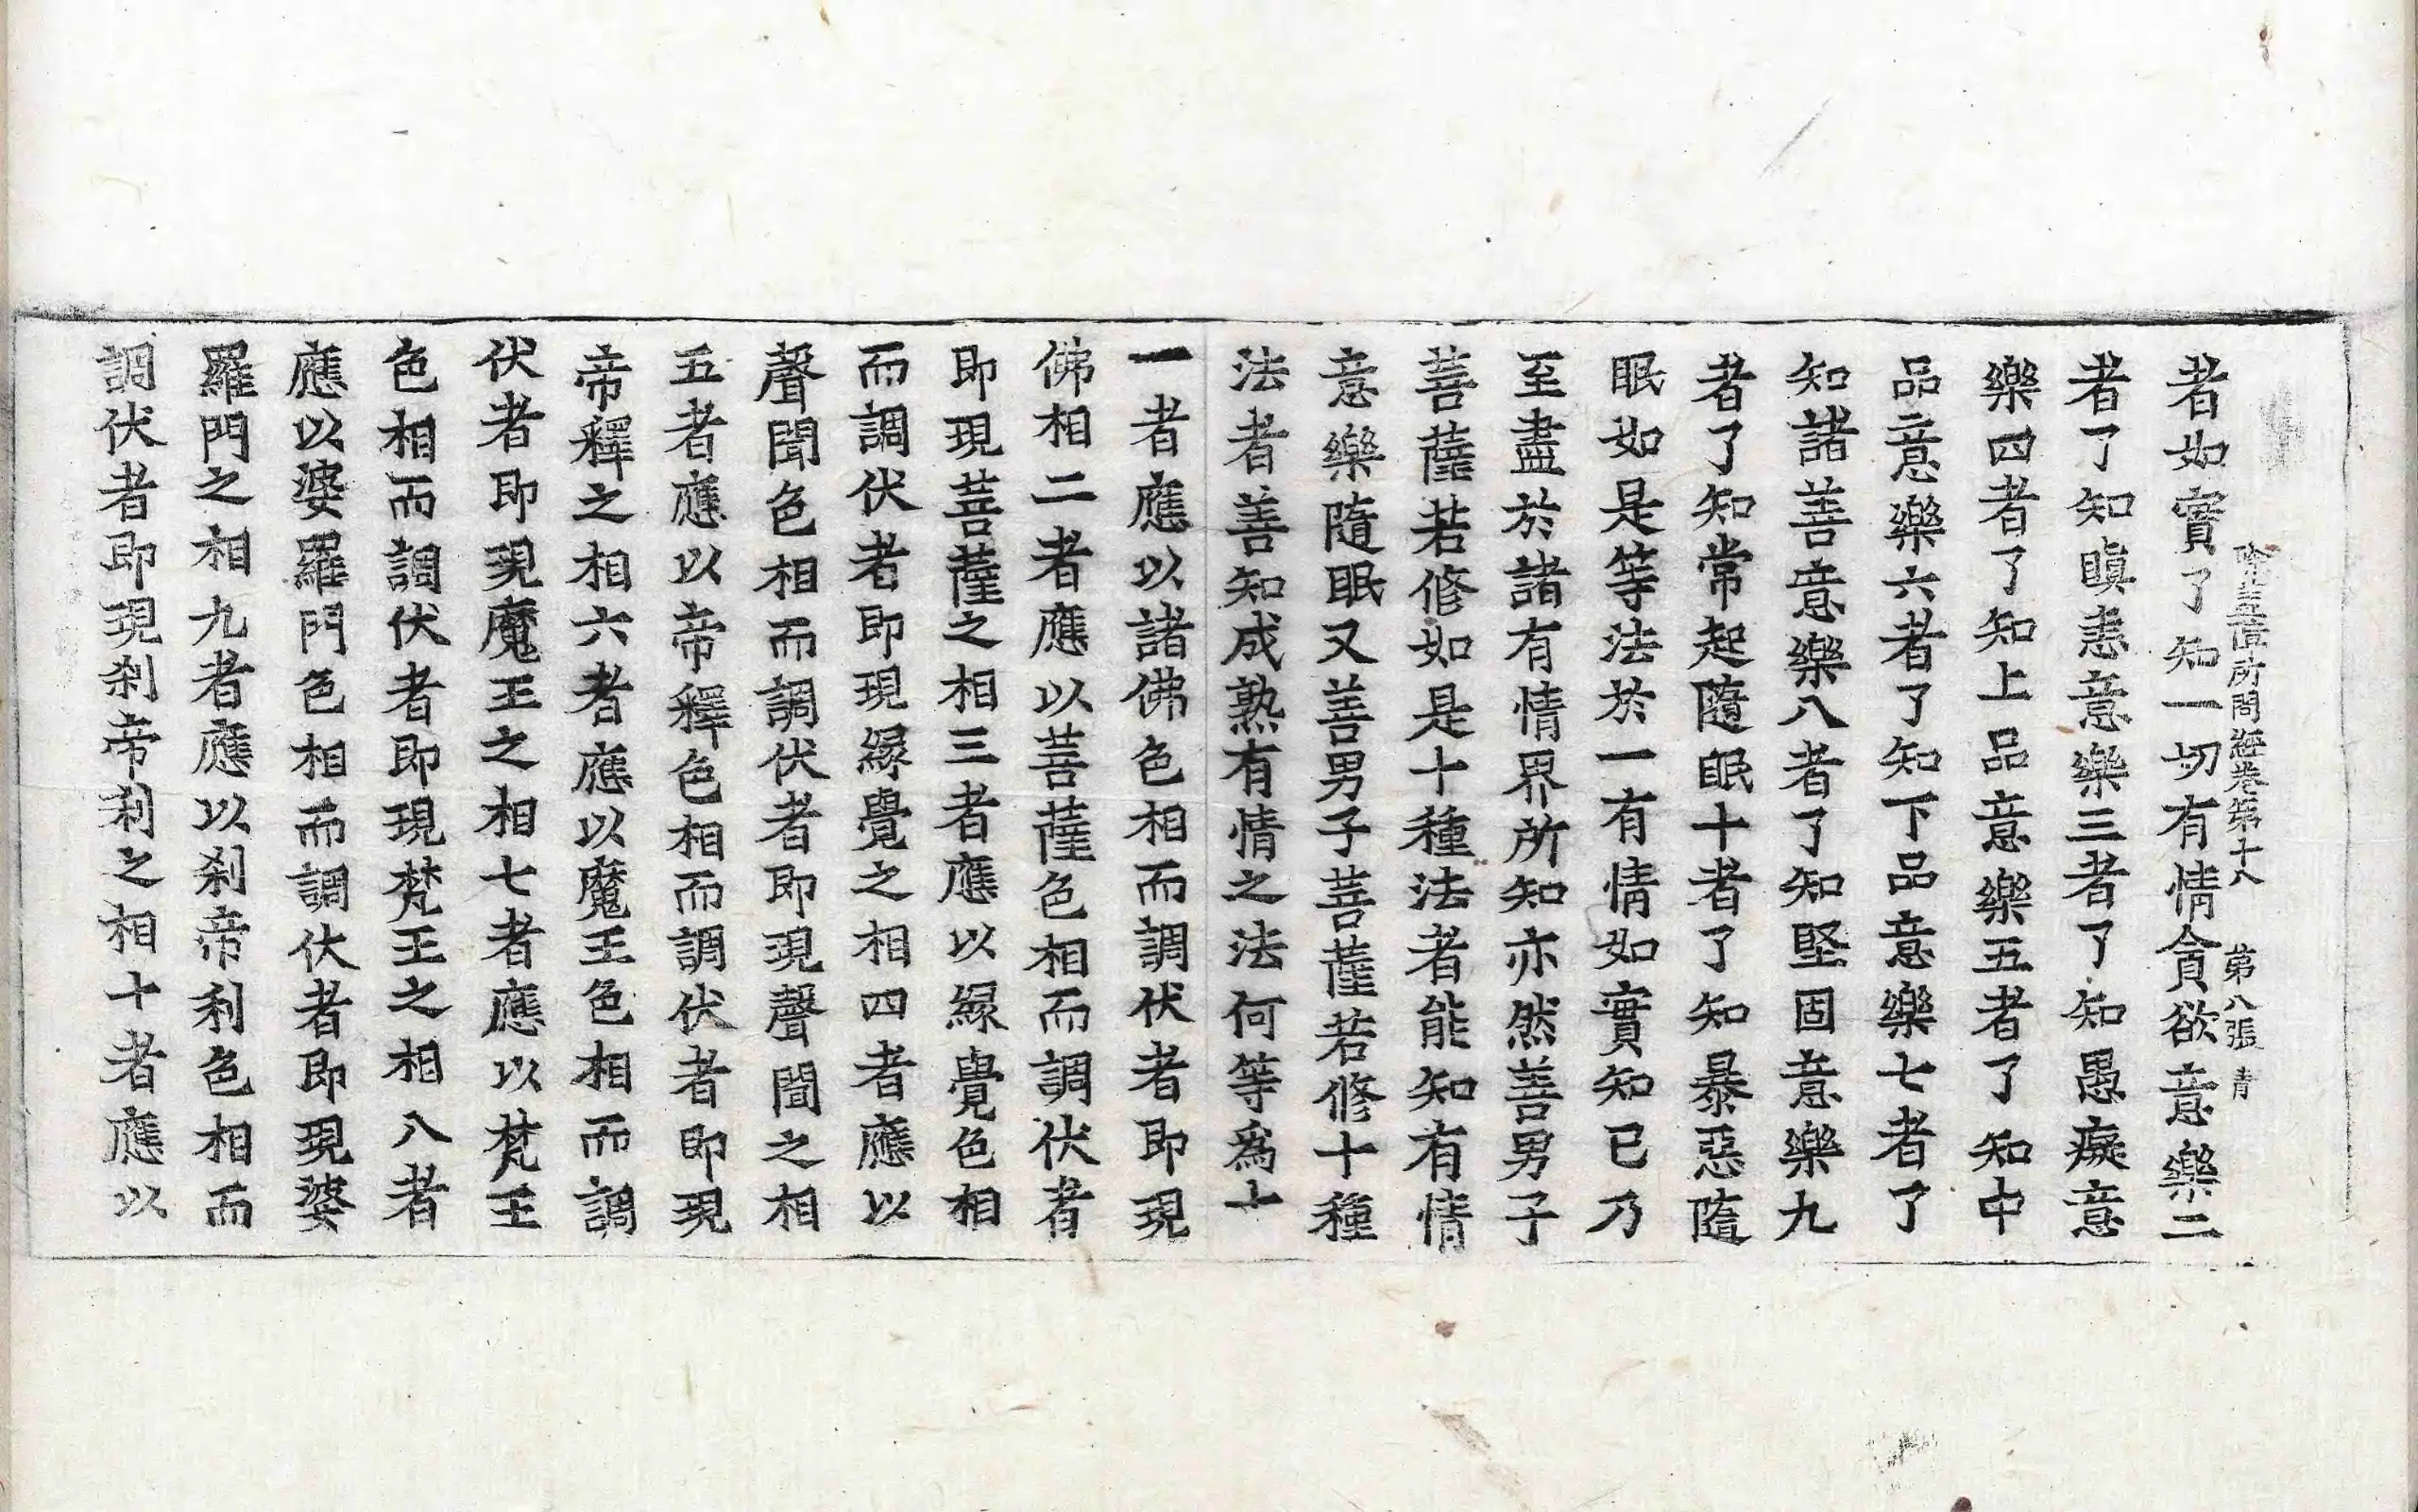 除蓋障所問經卷第十八 第八張 青
者如實了知一切有情貪欲意樂二
者了知瞋恚意樂三者了知愚癡意
樂四者了知上品意樂五者了知中
品意樂六者了知下品意樂七者了
知諸善意樂八者了知堅固意樂九
者了知常起隨眠十者了知暴惡隨
眠如是等法於一有情如實知已乃
至盡於諸有情界所知亦然善男子
菩薩若修如是十種法者能知有情
意樂隨眠又善男子菩薩若修十種
法者善知成熟有情之法何等爲十
一者應以諸佛色相而調伏者即現
佛相二者應以菩薩色相而調伏者
即現菩薩之相三者應以緣覺色相
而調伏者即現緣覺之相四者應以
聲聞色相而調伏者即現聲聞之相
五者應以帝釋色相而調伏者即現
帝釋之相六者應以魔王色相而調
伏者即現魔王之相七者應以梵王
色相而調伏者即現梵王之相八者
應以婆羅門色相而調伏者即現婆
羅門之相九者應以刹帝利色相而
調伏者即現刹帝利之相十者應以